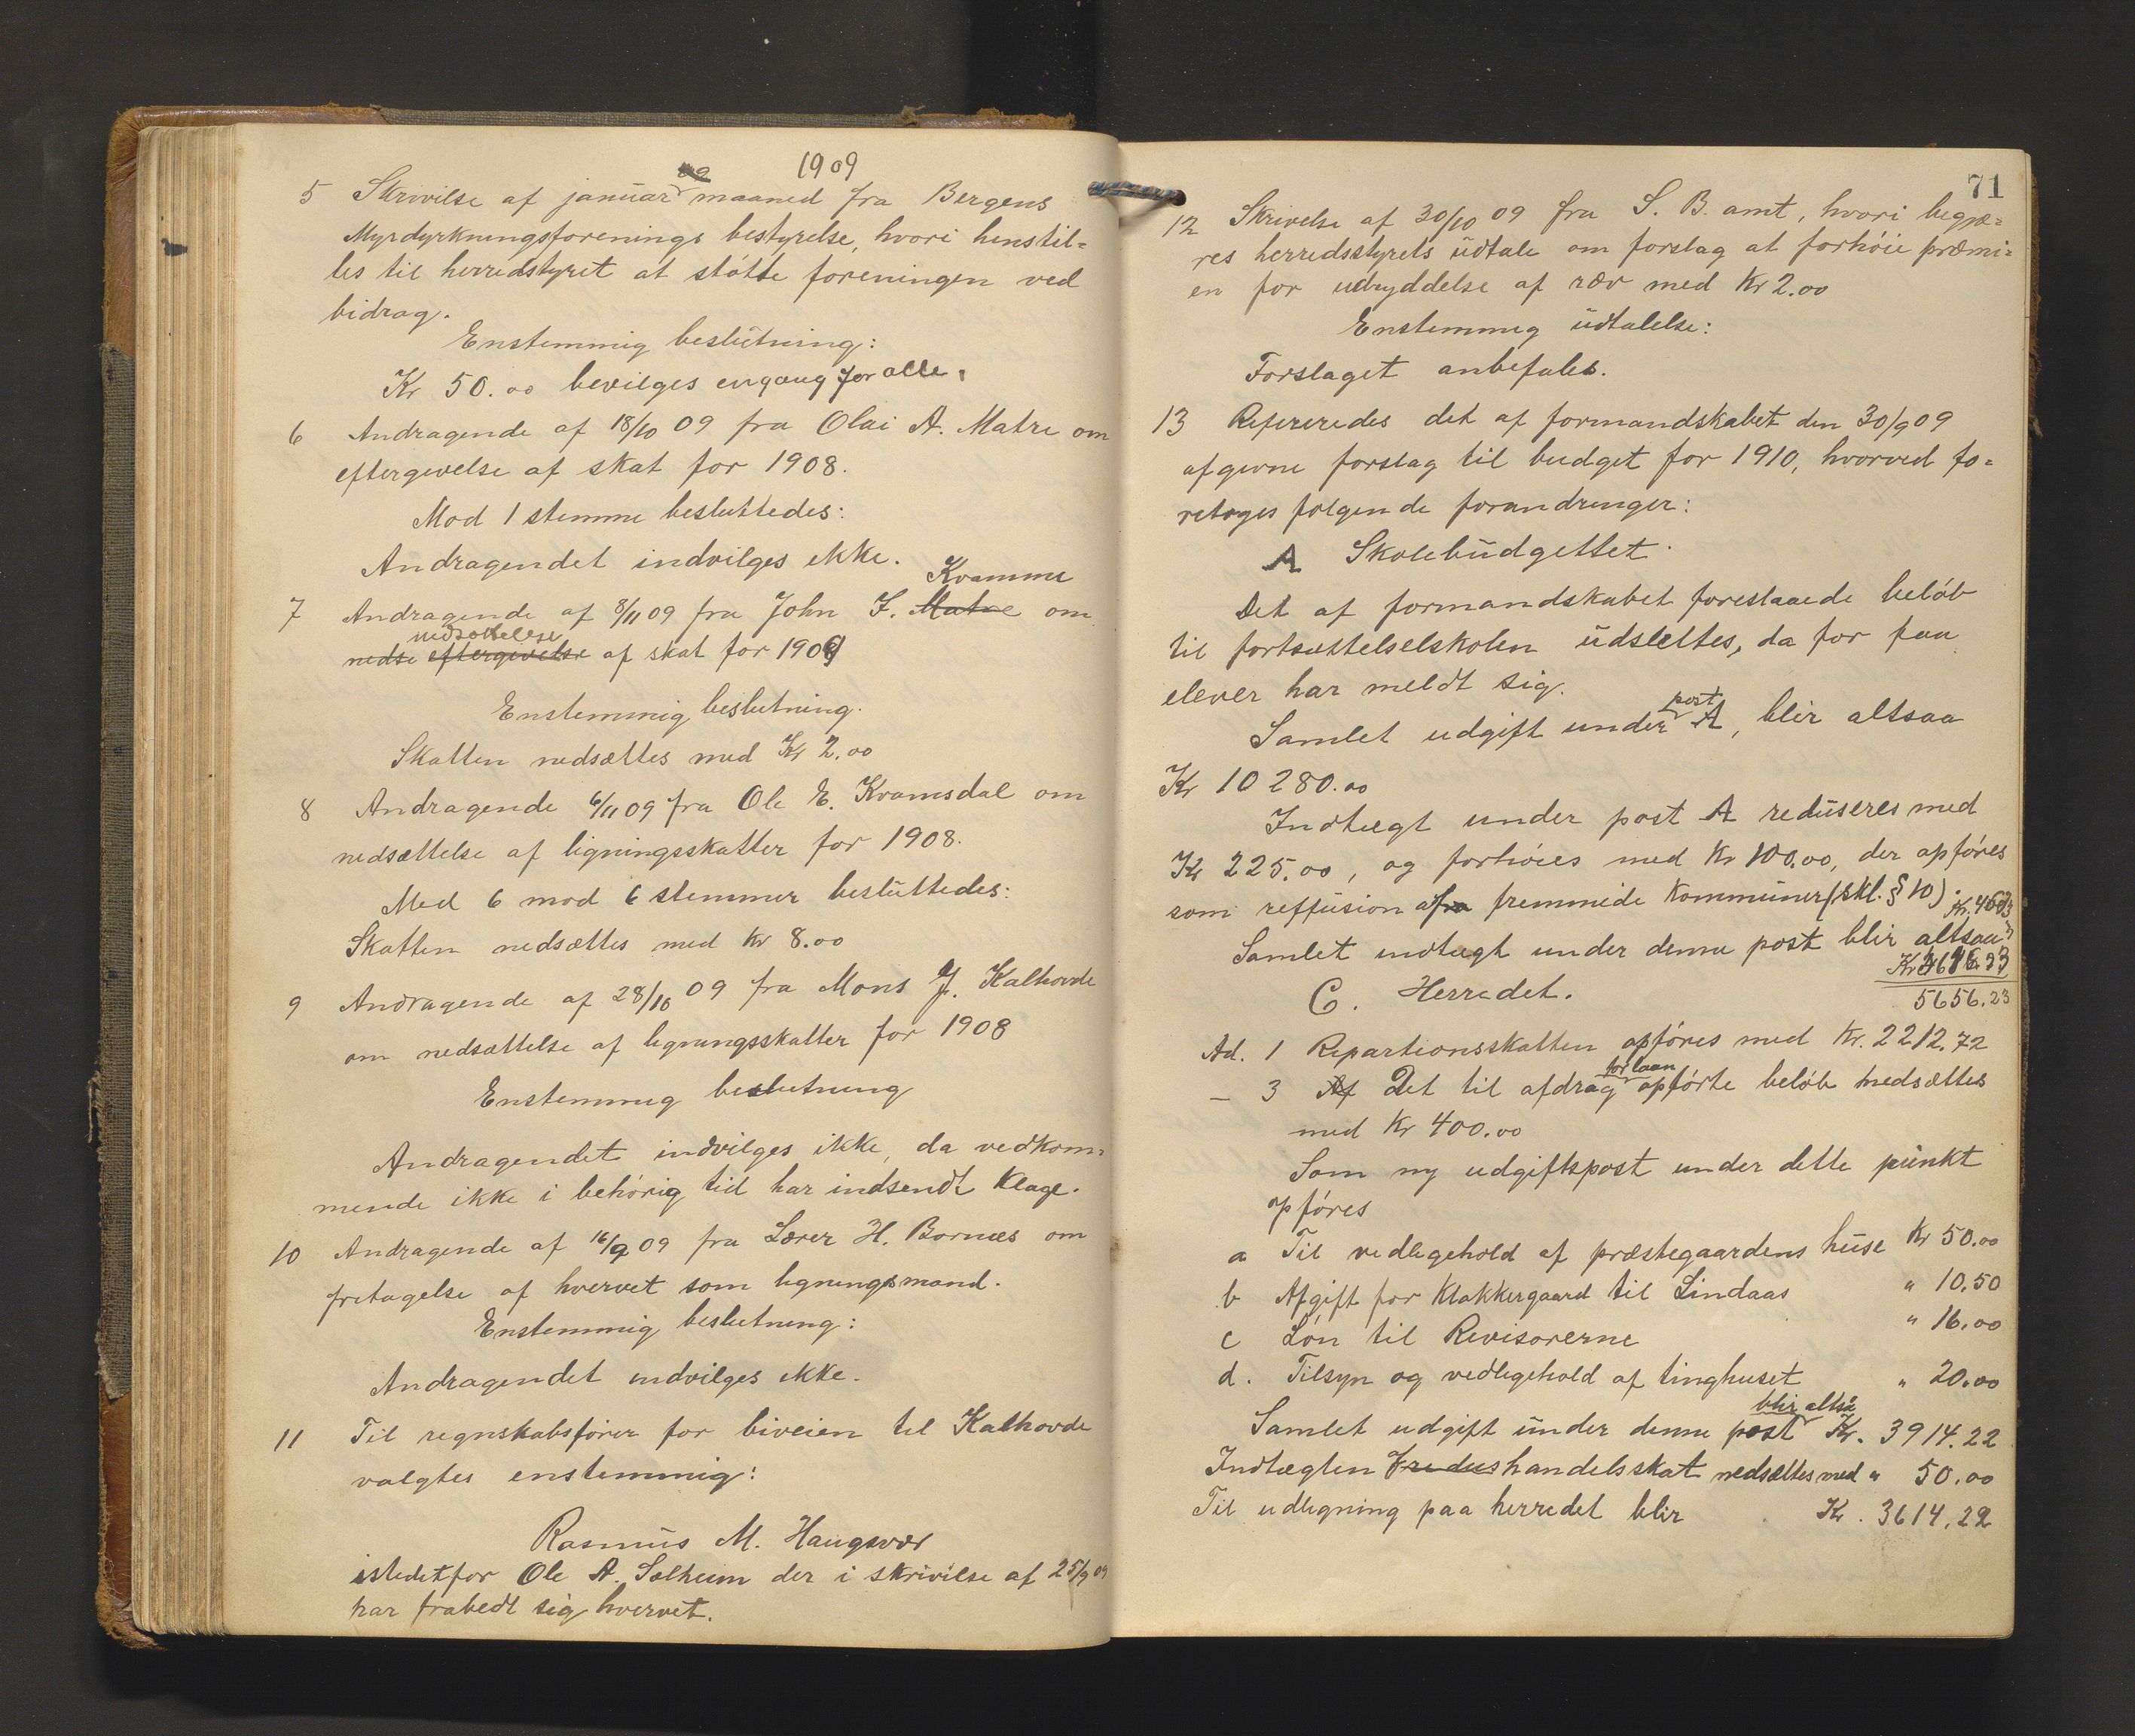 1909
5 Skrivilse af januar maaned fra Bergens
Myrdyrkningsforenings bestyrelse, hvori henstil=
les til herredstyret at støtte foreningen ved
bidrag.
Enstemmig beslutning:
Kr 50.00 bevilges engang for alle.
6 Andragende af 18/10 09 fra Olai A. Matre om
eftergivelse af skat for 1908.
Mod 1 stemme besluttedes:
Andragendet indvilges ikke.
Kvamme
7 Andragende af 8/11 09 fra John I. Matre om
nedsættelse
nedse eftergivelse af skat for 1909
Enstemmig beslutning.
Skatten nedsættes med Kr 2.00
8 Andragende 6/11 09 fra Ole E. Kvamsdal om
nedsættelse af ligningsskatter for 1908.
Med 6 mod 6 stemmer besluttedes:
Skatten nedsættes med kr 8.00
9 Andragende af 28/10 09 fra Mons J. Kalhovde
om nedsættelse af ligningsskatter for 1908
Enstemmig beslutning
Andragendet indvilges ikke, da vedkom=
mende ikke i behørig tid har indsendt klage.
10 Andragende af 16/9 09 fra Lærer H. Bornæs om
fritagelse af hvervet som ligningsmand.
Enstemmig beslutning:
Andragendet indvilges ikke.
11 Til regnskabsfører for biveien til Kalhovde
valgtes enstemmig:
Rasmus M. Haugsvær
istedetfor Ole A. Solheim der i skrivilse af 25/9 09
har frabedt sig hvervet.
71
12 Skrivelse af 30/10 09 fra S. B. amt, hvori begjæ=
res herredsstyrets udtale om forslag at forhøie præmi=
en for udryddelse af ræv med Kr 2.00
Enstemmig udtalelse:
Forslaget anbefales.
13 Refereredes det af formandskabet den 30/9 09
afgivne forslag til budget for 1910, hvorved fo=
retoges følgende forandringer:
A Skolebudgettet.
Det af formandskabet foreslaaede beløb
til fortsættelselskolen udslettes, da for faa
elever har meldt sig.
post
Samlet udgift under A, blir altsaa
Kr 10280.00
Indtægt under post A reduseres med
Kr 225.00, og forhøies med Kr 100.00, der opføres
som reffusion fra fremmede kommuner (skl. § 10).
Samlet indtægt under denne post blir altsaa
C. Herredet.
5656.23
Ad. 1 Repartionsskatten opføres med Kr. 2212.72
for laan
— 3 Af Det til afdrag opførte beløb nedsættes
med Kr 400.00
Som ny udgiftspost under dette punkt
opføres
a Til vedligehold af præstegaardens huse Kr 50.00
b Afgift for Klakkergaard til Lindaas " 10.50
c Løn til Revisorerne " 16.00
d. Tilsyn og vedligehold af tinghuset " 20.00
blir altså
Samlet udgift under denne post Kr. 3914.22
Indtægten handelsskat nedsættes med " 50.00
Til udligning paa herredet blir Kr. 3614.22